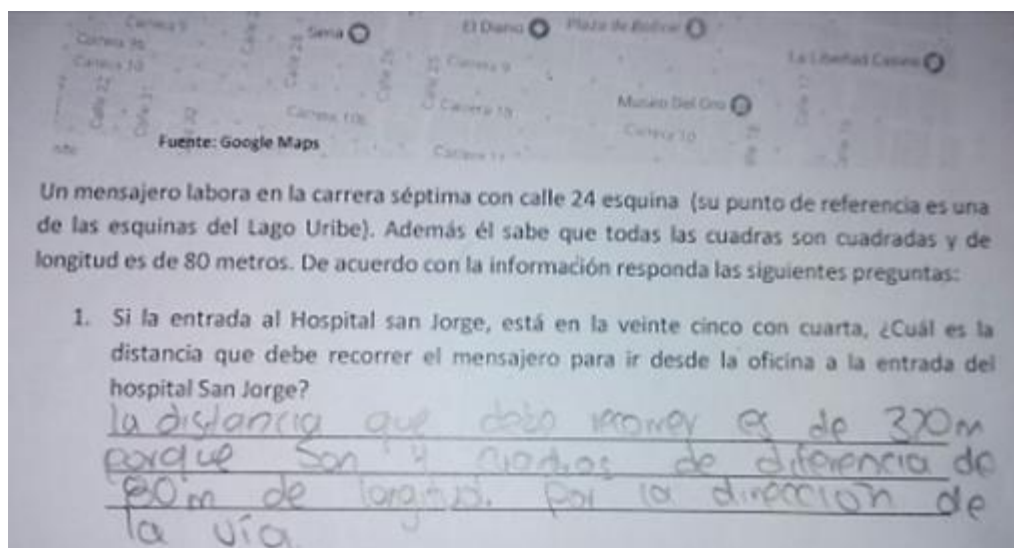 Carrera 9
Sena
El Diario
Plaza de Bolívar
Carrera 9b
La Libertad Casino
Carrera 10
Calle 28
Calle 26
Calle 25
Carrera 9
Calle 32
Calle 31
Carrera 10b
Carrera 10
Museo Del Oro
Carrera 10
Calle 17
Fuente: Google Maps
Carrera 11
Un mensajero labora en la carrera séptima con calle 24 esquina (su punto de referencia es una
de las esquinas del Lago Uribe). Además él sabe que todas las cuadras son cuadradas y de
longitud es de 80 metros. De acuerdo con la información responda las siguientes preguntas:
1. Si la entrada al Hospital san Jorge, está en la veinte cinco con cuarta, ¿Cuál es la
distancia que debe recorrer el mensajero para ir desde la oficina a la entrada del
hospital San Jorge?
la distancia que debe es de 320m
porque son 4 cuadras de diferencia de
80m de longitud. Por la dirección de
la vía